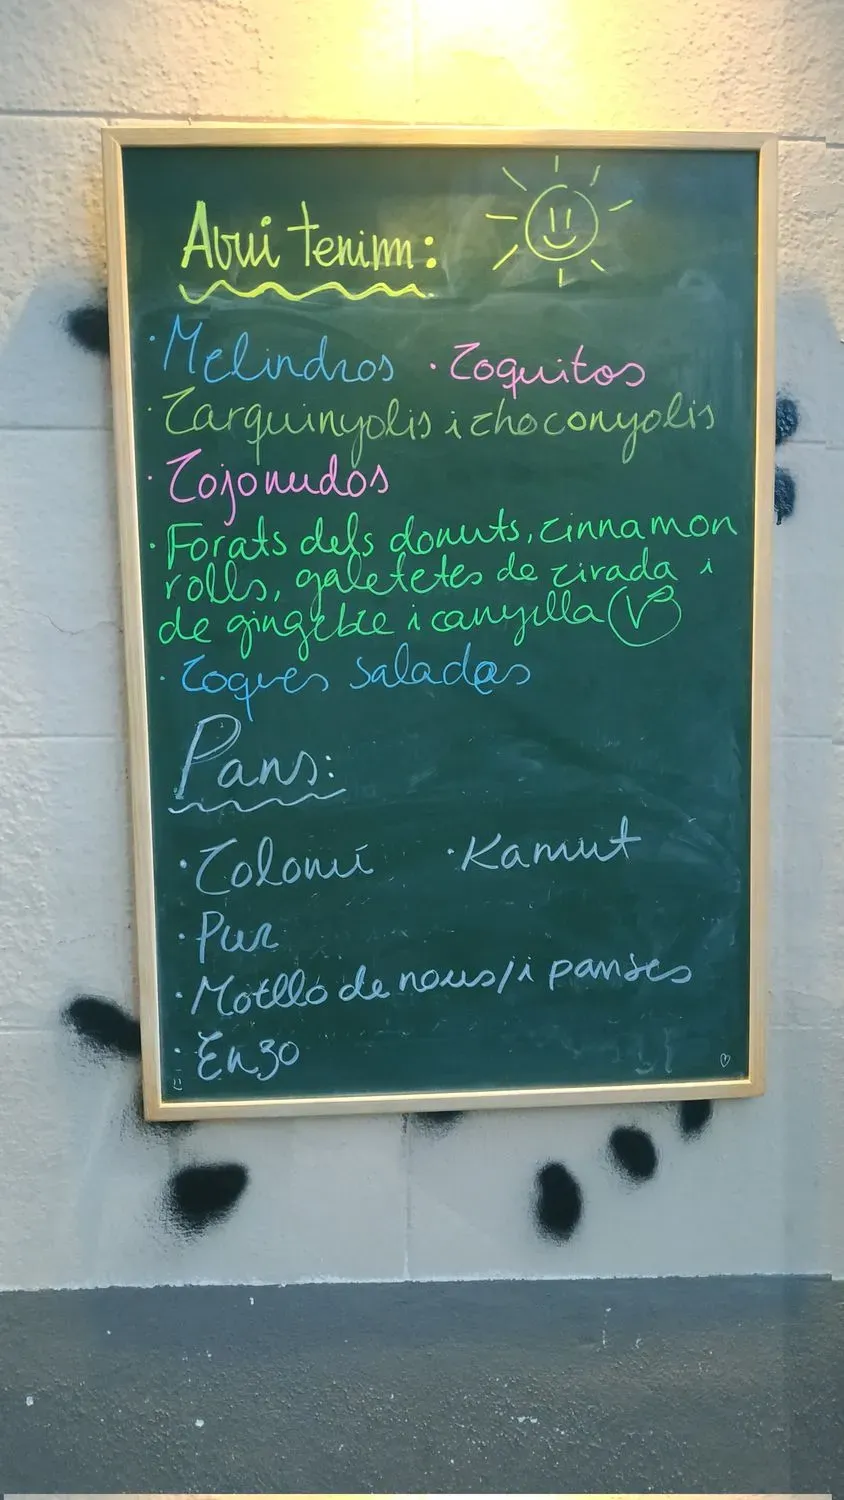 Avui tenim:
· Melindros · Coquitos
· Carquinyolis i choconyolis
· Cojonudos
· Forats dels donuts, cinnamon
rolls, galetetes de civada i
de gingebre i canyella (V)
· Coques salades
Pans:
· Colomí · Kamut
· Pur
· Motlló de nous/i panses
· Enzo